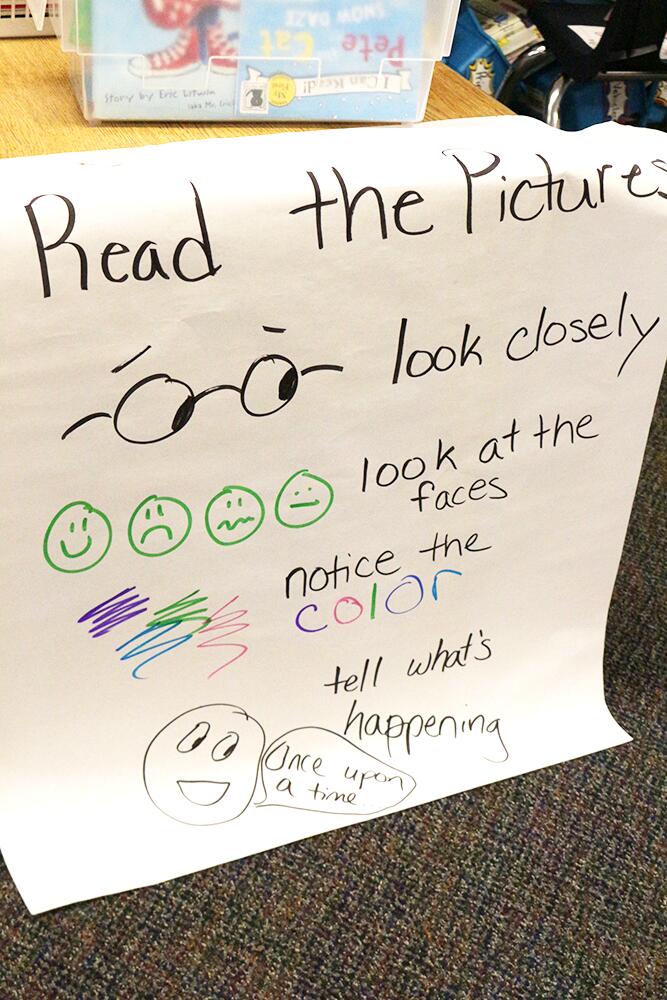 SNOW DAZE
Pete
Cat
I Can Read!
My
First
Story by Eric Litwin
(aka Mr. Eric)
Read the Pictures
look closely
look at the
faces
notice the
color
tell what's
happening
Once upon
a time...